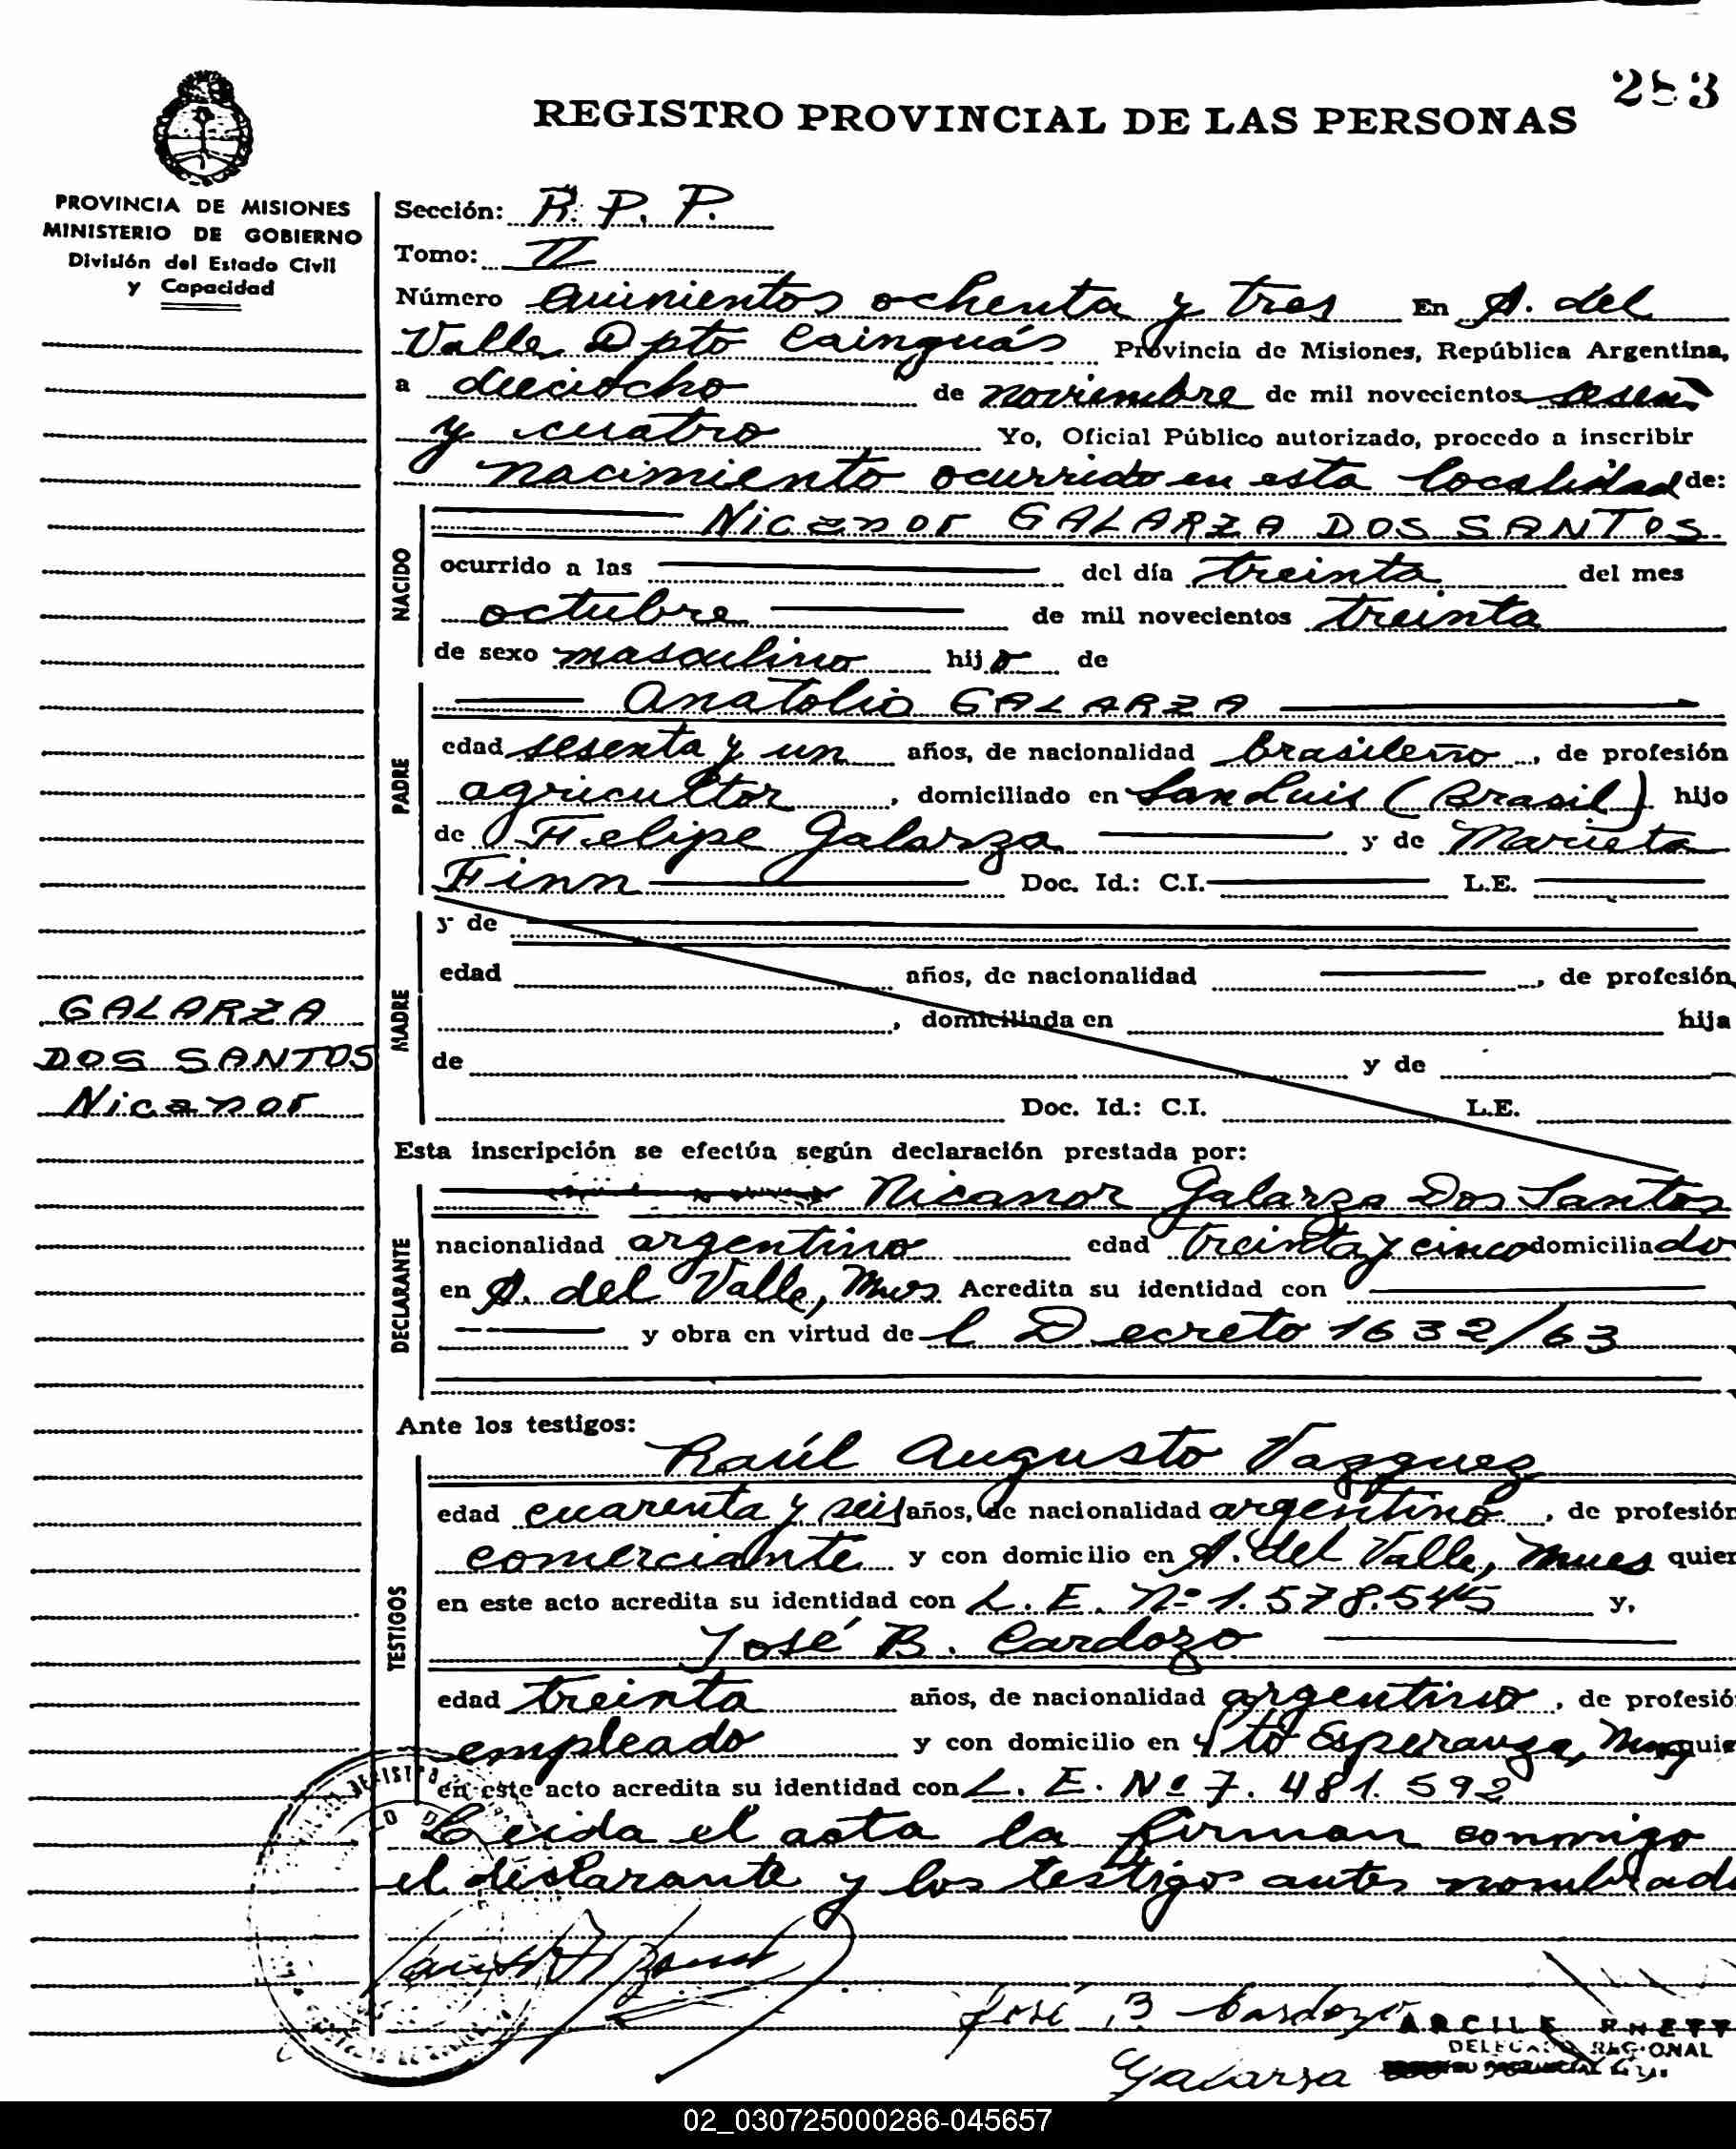 REGISTRO PROVINCIAL DE LAS PERSONAS
283
PROVINCIA DE MISIONES
MINISTERIO DE GOBIERNO
División del Estado Civil
y Capacidad
Sección: R. P. P.
Tomo: II
Número Quinientos ochenta y tres En A. del
Valle Dpto Cainguás Provincia de Misiones, República Argentina,
a dieciocho de noviembre de mil novecientos
y cuatro Yo, Oficial Público autorizado, procedo a inscribir
nacimiento ocurrido en esta localidad de:
NACIDO
Nicanor GALARZA DOS SANTOS
ocurrido a las del día treinta del mes
octubre de mil novecientos treinta
de sexo masculino hijo de
PADRE
Anatolio GALARZA
edad sesenta y un años, de nacionalidad brasileño, de profesión
agricultor, domiciliado en San Luis (Brasil) hijo
de Felipe Galarza y de Marieta
Finn Doc. Id.: C.I. L.E.
MADRE
y de
edad años, de nacionalidad , de profesión
, domiciliada en hija
de y de
Doc. Id.: C.I. L.E.
GALARZA
DOS SANTOS
Nicanor
Esta inscripción se efectúa según declaración prestada por:
DECLARANTE
Nicanor Galarza Dos Santos
nacionalidad argentino edad treinta y cinco domiciliado
en A. del Valle, Mnes Acredita su identidad con
y obra en virtud de l Decreto 1632/63
Ante los testigos:
TESTIGOS
Raúl Augusto Vazquez
edad cuarenta y seis años, de nacionalidad argentino, de profesión
comerciante y con domicilio en A. del Valle, Mnes quien
en este acto acredita su identidad con L. E. Nº 1.578.545 y,
José B. Cardozo
edad treinta años, de nacionalidad argentino, de profesió
empleado y con domicilio en Pto Esperanza, quie
en este acto acredita su identidad con L. E. Nº 7.481.592
Leida el acta la firman conmigo
el declarante y los testigos antes nombrad
José B Cardozo
DELEGADO REGIONAL
Galarza
02_030725000286-045657